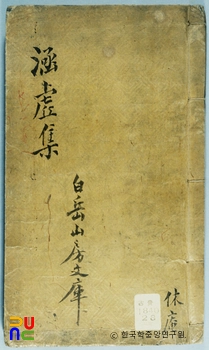 涵虛集
白岳山房文庫
休窩
PUNC
ⓒ 한국학중앙연구원